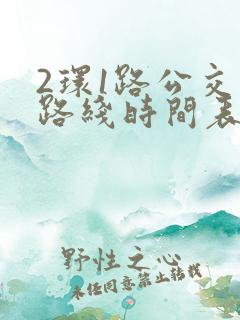 2環1路公交
路綫時間表
野性之心
未经同意禁止转载